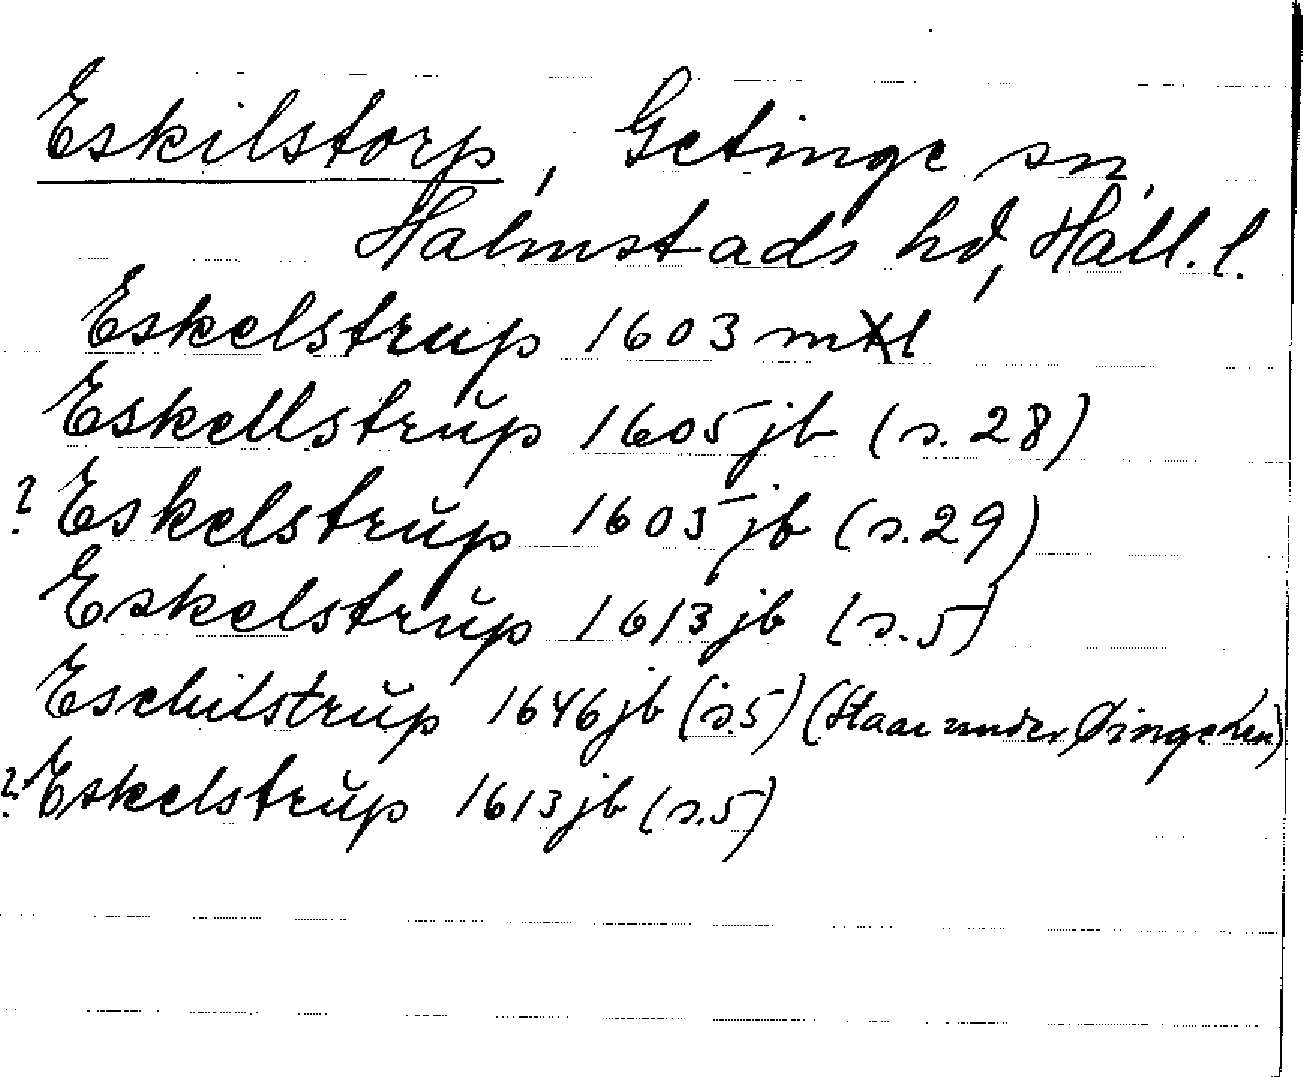 Eskilstorp, Getinge sn,
Halmstads hd, Hall. l.
Eskelstrup 1603 mtl
Eskellstrŭp 1605 jb (s. 28)
? Eskelstrŭp 1605 jb (s. 29)
Eskelstrŭp 1613 jb (s. 5)
Eschilstrŭp 1646 jb (s. 5) (Staar under Dingeden)
? Eskelstrŭp 1613 jb (s. 5)